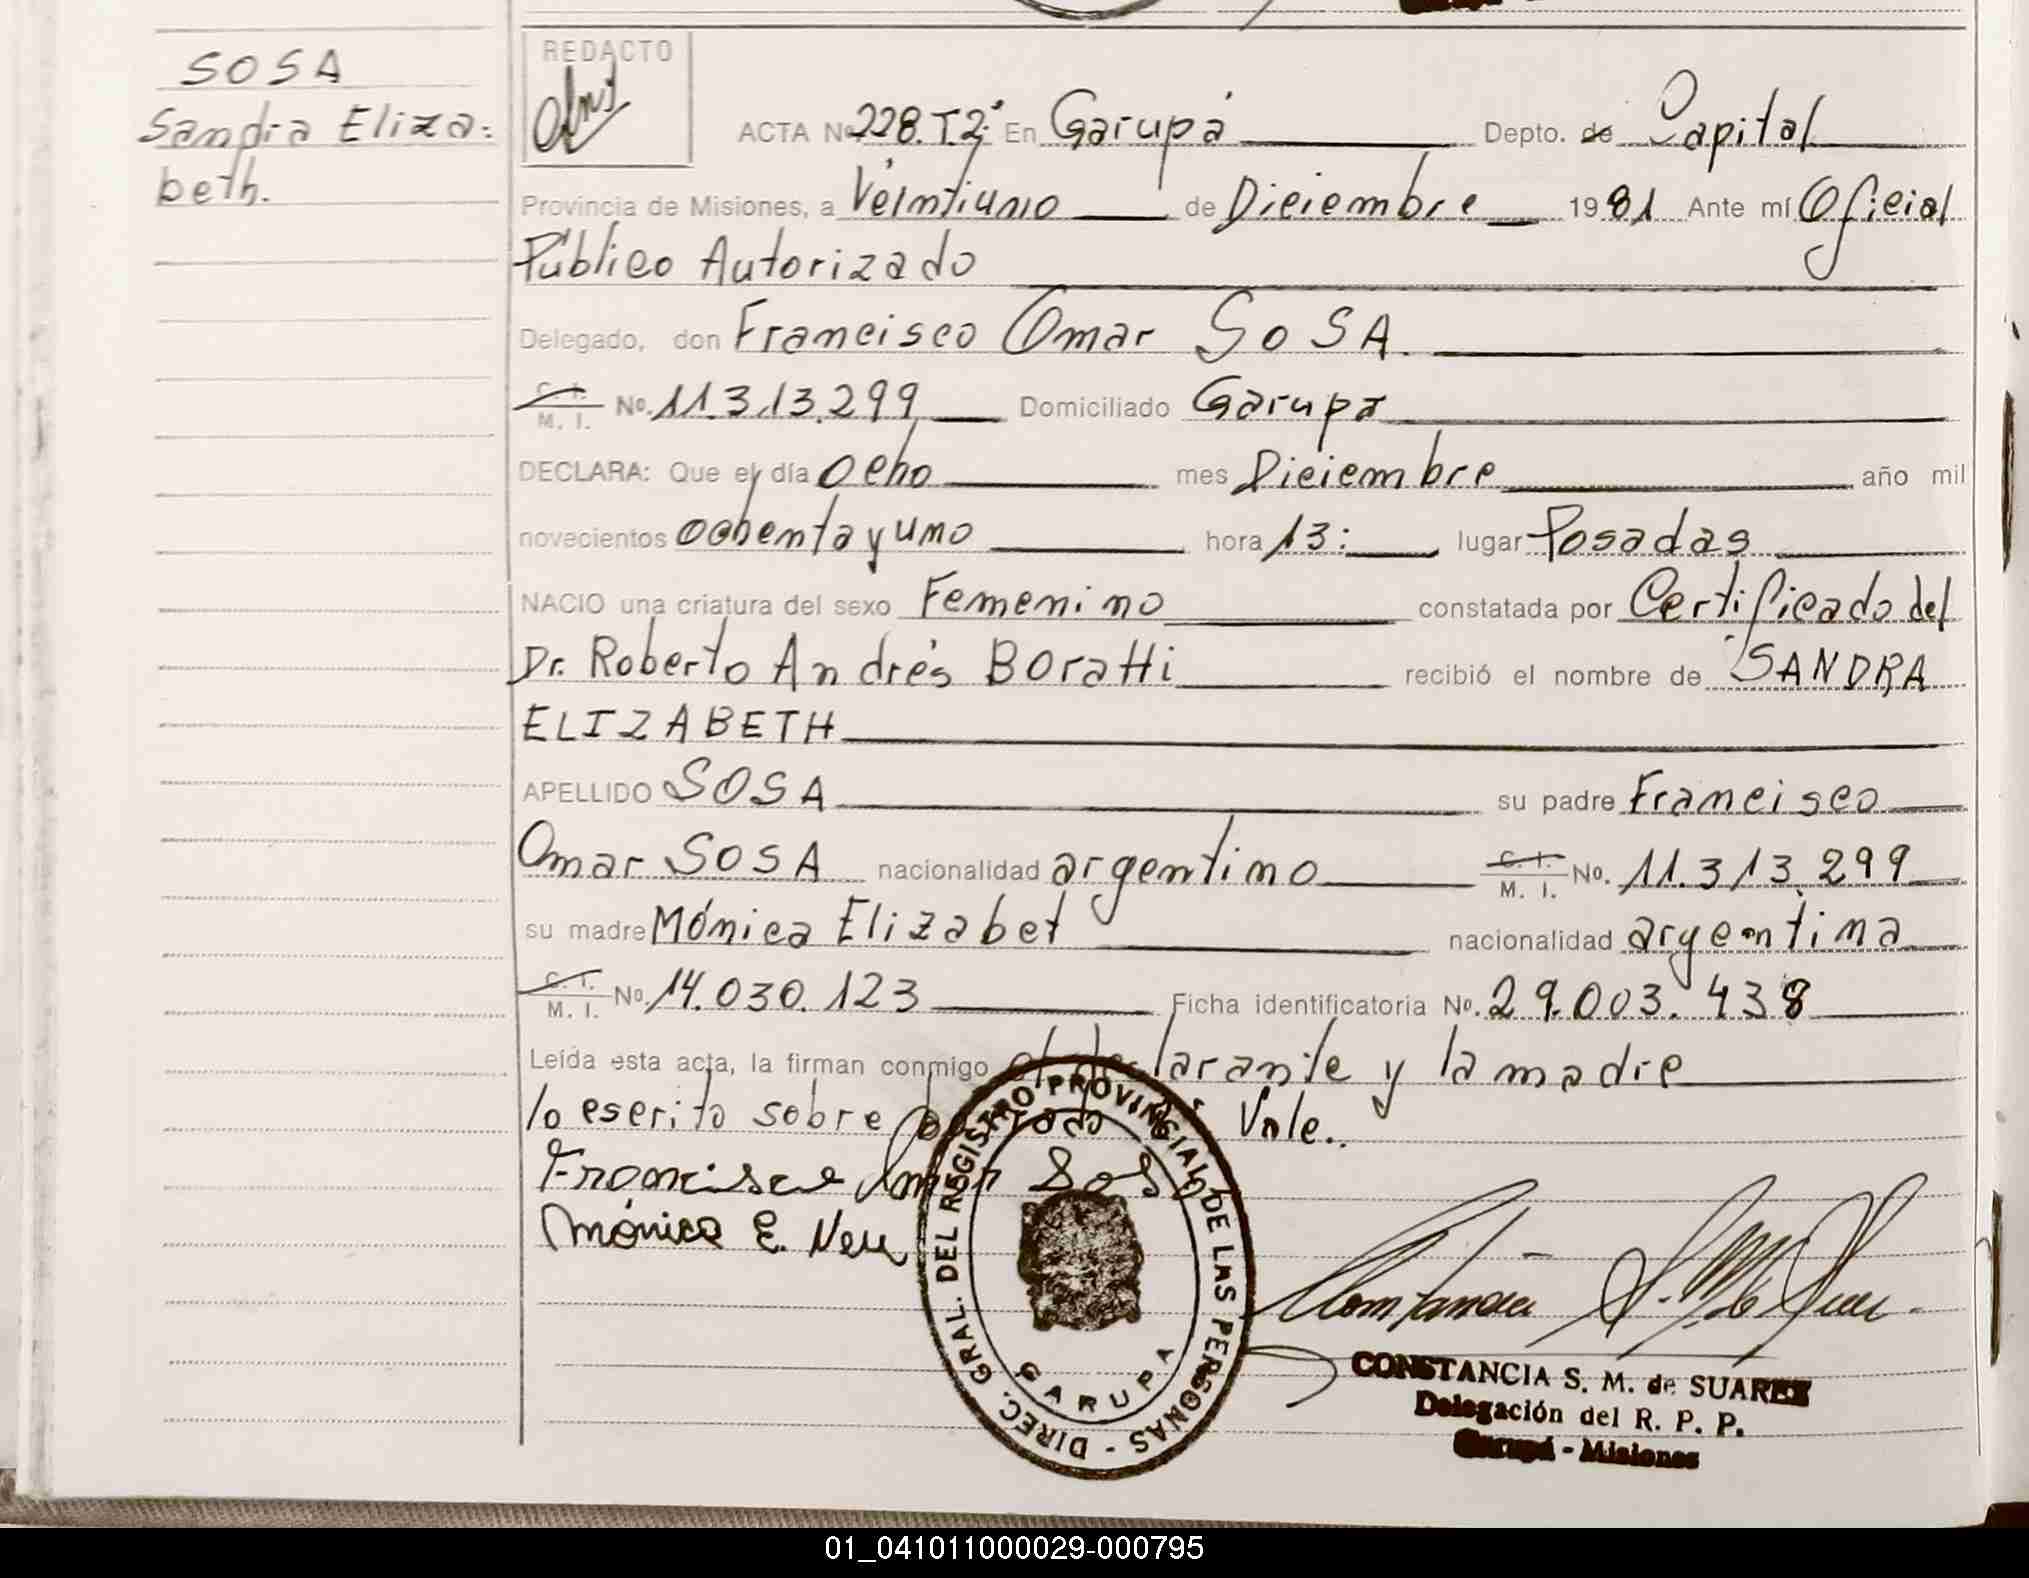 SOSA
Sandra Eliza:
beth.
REDACTO
ACTA No 228. T2º En Garupá Depto. de Capital
Provincia de Misiones, a Veintiuno de Diciembre 1981 Ante mí Oficial
Público Autorizado
Delegado, don Francisco Omar SOSA.
C. I. M. I. No. 11.313.299 Domiciliado Garupá
DECLARA: Que el día Ocho mes Diciembre año mil
novecientos ochenta y uno hora 13: lugar Posadas
NACIO una criatura del sexo Femenino constatada por Certificado del
Dr. Roberto Andrés Boratti recibió el nombre de SANDRA
ELIZABETH
APELLIDO SOSA su padre Francisco
Omar SOSA nacionalidad argentino C. I. M. I. No. 11.313.299
su madre Mónica Elizabet nacionalidad argentina
C. I. M. I. No. 14.030.123 Ficha identificatoria No. 29.003.438
Leída esta acta, la firman conmigo el declarante y la madre
lo escrito sobre borrado Vale..
Francisco Omar Sosa
Mónica E. Neu
DIREC. GRAL. DEL REGISTRO PROVINCIAL DE LAS PERSONAS -
GARUPA
CONSTANCIA S. M. de SUAREZ
Delegación del R. P. P.
Garupá - Misiones
01_041011000029-000795